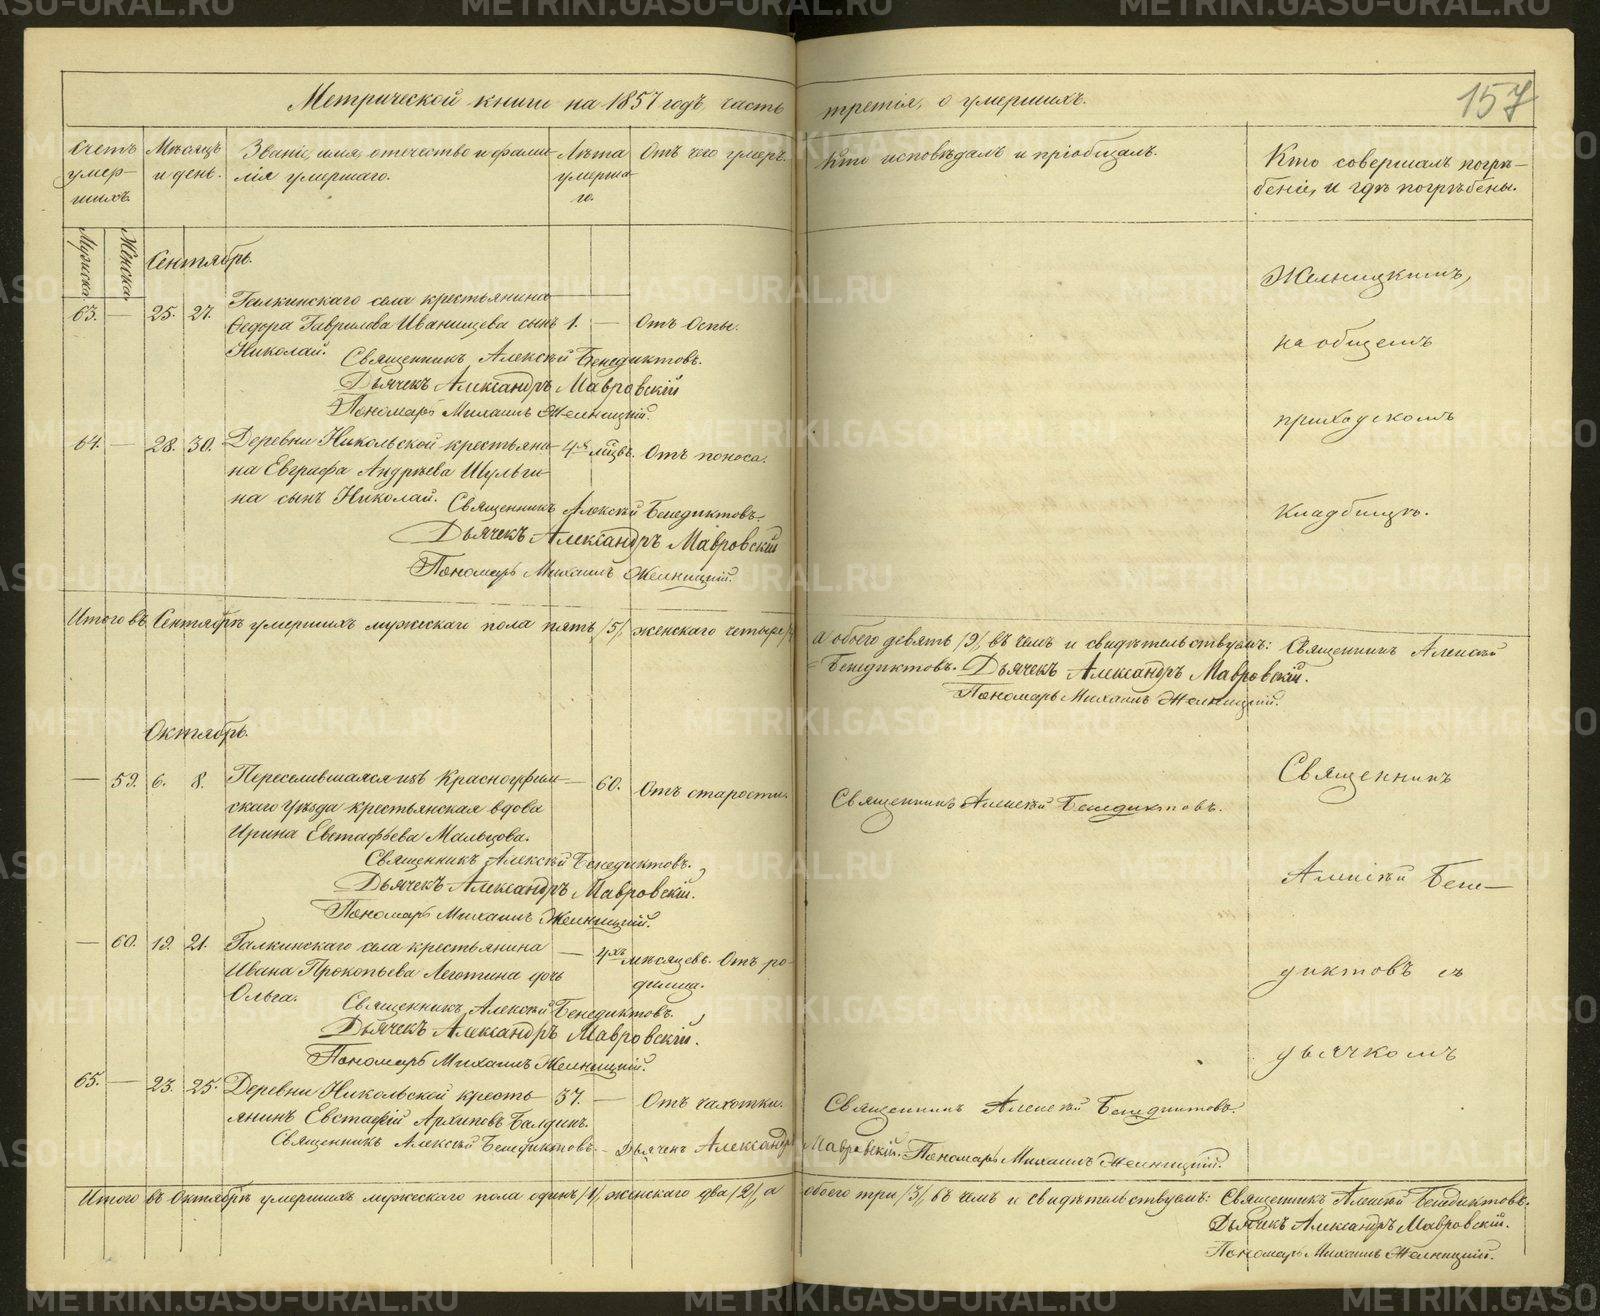 Метрической книги на 1857 годъ часть третія, о умершихъ.
157
Счетъ умер-шихъ.
Мѣсяцъ и день.
Званіе, имя, отечество и фами-
лія умершаго.
Лѣта
умерша-
го.
Отъ чего умеръ.
Кто исповѣдалъ и пріобщалъ.
Кто совершалъ погре-
беніе, и гдѣ погребены.
Мужска.
Женска.
Сентябрь.
63. — 25. 27. Галкинскаго села крестьянина
Ѳедора Гаврилова Иванищева сынъ 1. — Отъ Оспы.
Николай. Священникъ Алексѣй Бенедиктовъ.
Дьячекъ Александръ Мавровскій
Пономарь Михаилъ Желницкій.
64. — 28. 30. Деревни Никольской крестьяни-
на Евграфа Андреева Шульги-
на сынъ Николай. 4-х мцвъ. Отъ поноса.
Священникъ Алексѣй Бенедиктовъ.
Дьячекъ Александръ Мавровскій
Пономарь Михаилъ Желницкій.
Желницкимъ,
на общемъ
приходскомъ
Кладбищѣ.
Итого въ Сентябрѣ умершихъ мужескаго пола пять /5/, женскаго четыре /4/
а обоего девять /9/, въ чемъ и свидѣтельствуемъ: Священникъ Алексѣй
Бенедиктовъ. Дьячекъ Александръ Мавровскій.
Пономарь Михаилъ Желницкій.
Октябрь.
— 59. 6. 8. Переселившаяся изъ Красноуфим-
скаго Уѣзда крестьянская вдова
Ирина Евстафьева Мальцова. — 60. Отъ старости.
Священникъ Алексѣй Бенедиктовъ.
Священникъ Алексѣй Бенедиктовъ.,
Дьячекъ Александръ Мавровскій.
Пономарь Михаилъ Желницкій.
— 60. 19. 21. Галкинскаго села крестьянина
Ивана Прокопьева Леготина дочь
Ольга. — 4хъ мѣсяцевъ. Отъ ро-
димца.
Священникъ Алексѣй Бенедиктовъ.,
Дьячекъ Александръ Мавровскій.
Пономарь Михаилъ Желницкій.
65. — 23. 25. Деревни Никольской кресть-
янинъ Евстафій Архиповъ Балдинъ. 37. — Отъ чахотки.
Священникъ Алексѣй Бенедиктовъ.
Священникъ Алексѣй Бенедиктовъ. – Дьячекъ Александръ Мавровскій. Пономарь Михаилъ Желницкій.
Священникъ
Алексѣй Бене-
диктовъ съ
дьячкомъ
Итого въ Октябрѣ умершихъ мужескаго пола одинъ /1/, женскаго два /2/, а обоего три /3/, въ чемъ и свидѣтельствуемъ: Священникъ Алексѣй Бенедиктовъ.
Дьячекъ Александръ Мавровскій.
Пономарь Михаилъ Желницкій.
METRIKI.GASO-URAL.RU